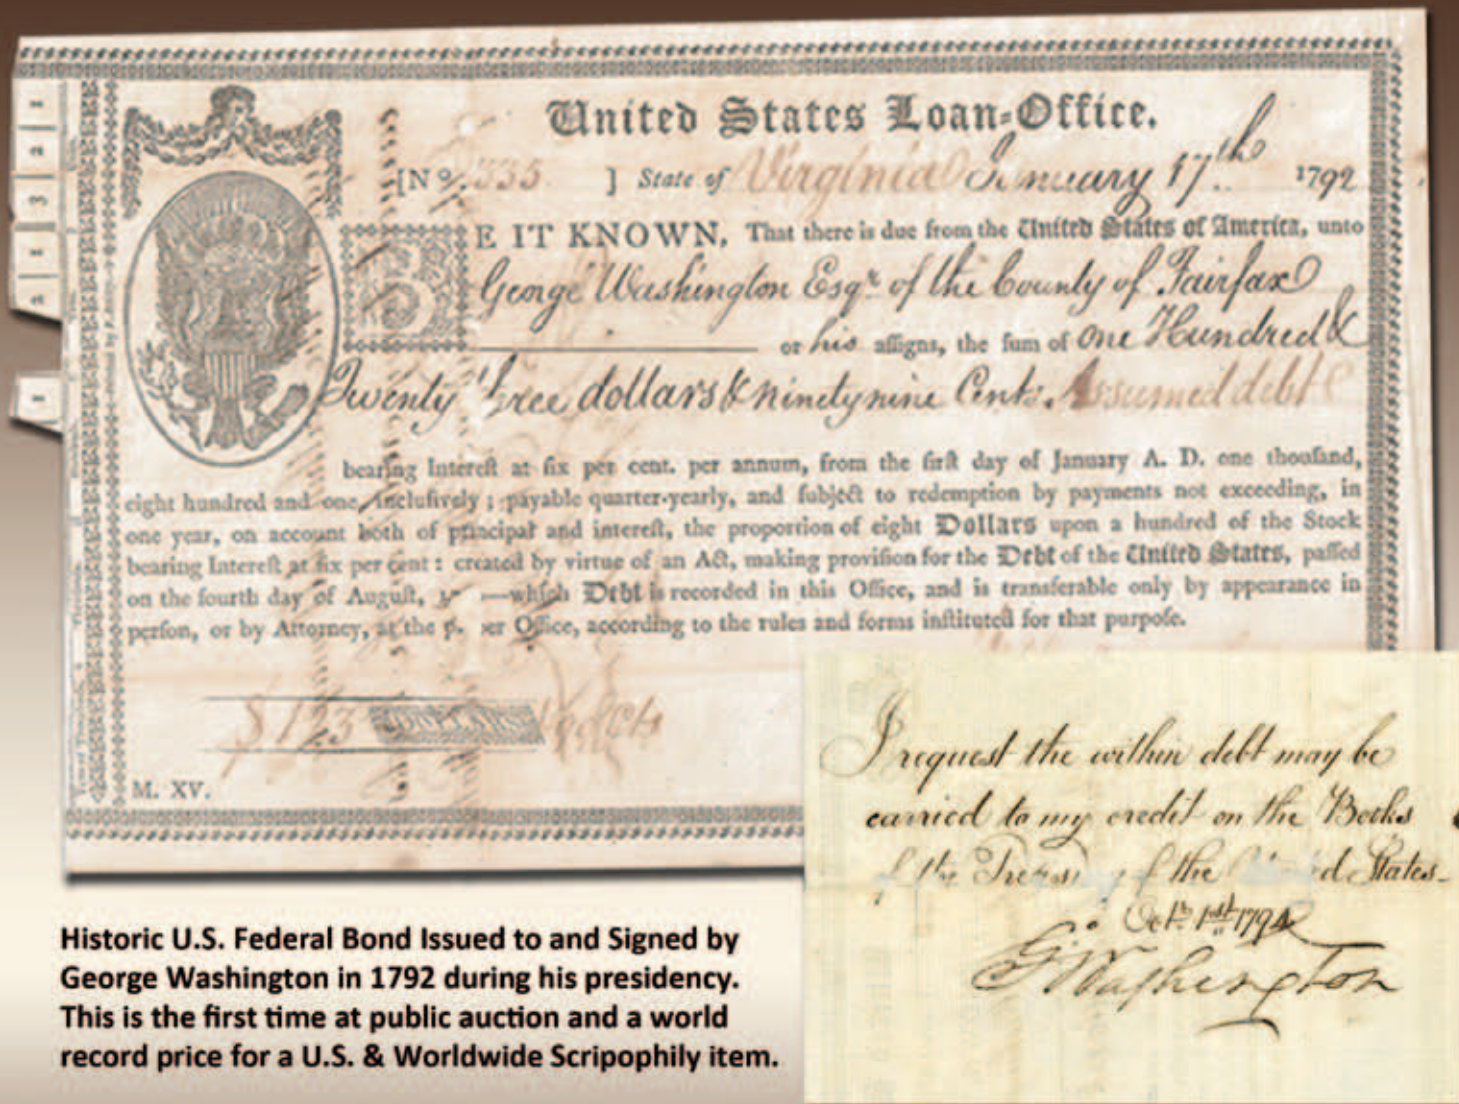 United States Loan-Office.
[No. 335 ] State of Virginia January 17th 1792
BE IT KNOWN, That there is due from the United States of America, unto
George Washington Esqr. of the County of Fairfax
or his assigns, the sum of One Hundred &
Twenty three dollars & ninety nine Cents. Assumed debt
bearing Interest at six per cent. per annum, from the first day of January A. D. one thousand,
eight hundred and one, inclusively; payable quarter-yearly, and subject to redemption by payments not exceeding, in
one year, on account both of principal and interest, the proportion of eight Dollars upon a hundred of the Stock
bearing Interest at six per cent: created by virtue of an Act, making provision for the Debt of the United States, passed
on the fourth day of August, —which Debt is recorded in this Office, and is transferable only by appearance in
person, or by Attorney, at the Office, according to the rules and forms instituted for that purpose.
$ 123 DOLLARS Cts
M. XV.
I request the within debt may be
carried to my credit on the Books
of the of the States.
Octr. 1st 1792
G. Washington
Historic U.S. Federal Bond Issued to and Signed by
George Washington in 1792 during his presidency.
This is the first time at public auction and a world
record price for a U.S. & Worldwide Scripophily item.